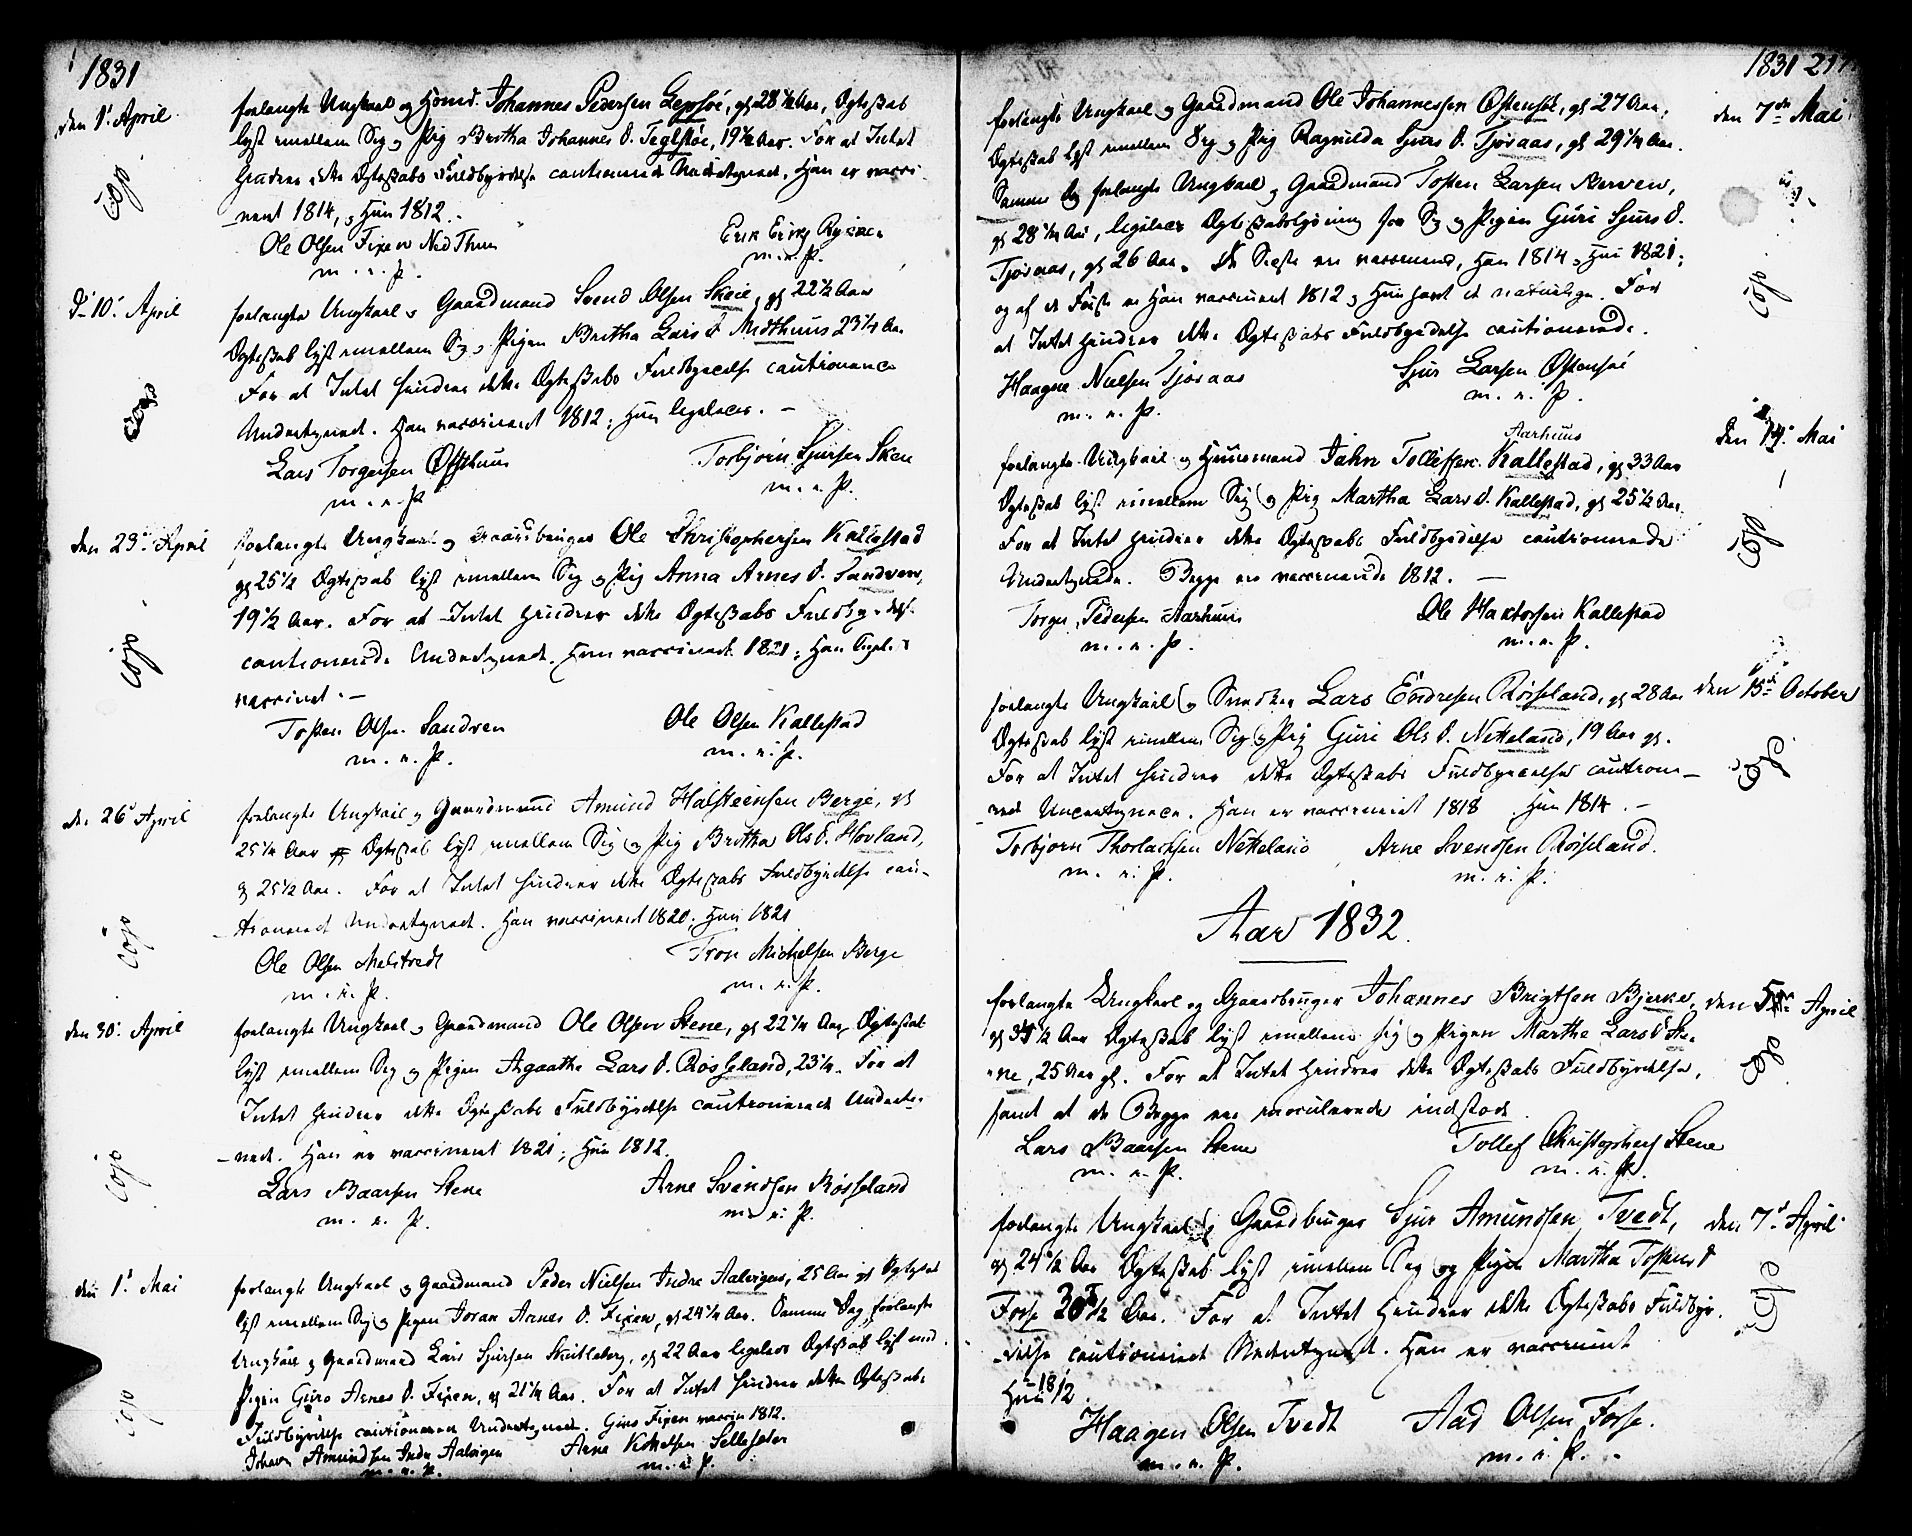 1831
den 1' April
forlangte Ungkarl og Huusmd. Johannes Pedersen Lepsøe, gl 28 1/2 Aar, Ægteskab
lyst imellem Sig og Pig Britha Johannes D. Teglsøe, 19 1/2 Aar. For at Intet
hindrer dette Ægteskabs Fuldbyrdelse cautionerede Undertegned. Han er vacci-
neret 1814, og Hun 1812.-
Ole Olsen Fixen Ned Thun
m. n. P.
d 10' April
forlangte Ungkarl og Gaardmand Svend Olsen Skeie, gl 22 1/2 Aar
Ægteskab lyst imellem Sig og Pigen Britha Lars D Midthuus 23 1/4 Aar
For at Intet hindrer dette Ægteskabs Fuldbyrdelse cautionerede
Undertegned. Han vaccineret 1812; Hun ligeledes. -
Lars Torgersen Øfsthuus Torbjørn Sjursen Skeie
m. n. P. m. n. P.
den 23' April
forlangte Ungkarl og Gaardbruger Ole Christophersen Kallestad
gl 25 1/2 Ægteskab lyst imellem Sig og Pig Anna Arnes D. Sandven,
19 1/2 Aar. For at Intet hindrer dette Ægteskabs Fuldbyrdelse
cautionerede Undertegned. Hun vaccineret 1821; Han
vaccineret. -
Tosten Olsen Sandven Ole Olsen Kallestad
m. n. P. m. n. P.
den 26' April
forlangte Ungkarl og Gaardmand Amund Halsteensen Berge, gl
25 1/4 Aar Ægteskab lyst imellem Sig og Pig Britha Ols D. Hovland,
gl 25 1/2 Aar. For at Intet hindrer dette Ægteskabs Fuldbyrdelse cau-
tioneret Undertegned. Han vaccineret 1820, Hun 1821
Ole Olsen Melstvedt Tron Michelsen Berge
m. n. P. m. n. P.
den 30' April
forlangte Ungkarl og Gaardmand Ole Olsen Stene, gl 22 1/4 Aar, Ægteskab
lyst imellem Sig og Pigen Agaathe Lars D. Røsseland, 23 1/4. For at
Intet hindrer dette Ægteskabs Fuldbyrdelse cautionerede Underte-
-ned. Han er vaccineret 1821; Hun 1812.
Lars Baarsen Stene Arne Svendsen Røsseland
m. n. P. m. n. P.
den 1' Mai
forlangte Ungkarl og Gaardmand Peder Nielsen Indre Aalvigen, 25 Aar gl Ægteskab
lyst imellem Sig og Pigen Joran Arnes D. Fixen, gl 24 1/4 Aar. Samme Dag forlangte
Ungkarl og Gaardmand Lars Sjursen Skutleberg, gl 22 Aar ligeledes Ægteskab lyst med
Pigen Guro Arnes D. Fixen, gl 21 1/4 Aar. For at Intet hindrer dette Ægteskabs
Fuldbyrdelse cautionerer Undertegned. Guro Fixen vaccin 1812.
Johan Amundsen Indre Aalvigen Arne Sellesæter
m. n. P. m. n. P.
1831
den 7de Mai
forlangte Ungkarl og Gaardmand Ole Johannessen Østensøe, gl 27 Aar,
Ægteskab lyst imellem Sig og Pig Ragnilda Sjurs D. Tjoraas, gl 29 1/4 Aar.
Samme Dag forlangte Ungkarl og Gaardmand Tosten Larsen Nerven,
gl 28 1/4 Aar, ligeledes Ægteskabslysning for Sig og Pigen Guri Sjurs D.
Tjoraas, gl 26 Aar. De Sidste ere vaccinerede, Han 1814 og Hun 1821;
og af de Første er Han vaccineret 1812 og Hun havt de naturlige. For
at Intet hindrer dette Ægteskabs Fuldbyrdelse cautionerede.
Haagne Nielsen Tjoraas Sjur Larsen Østensøe
m. n. P. m. n. P.
den 14' Mai
Aarhuus
forlangte Ungkarl og Huusmand Jahn Tollefsen Kallestad, gl 33 Aar
Ægteskab lyst imellem Sig og Pig Martha Lars D. Kallestad, gl 25 1/2 Aar.
For at Intet hindrer dette Ægteskabs Fuldbyrdelse cautionerede
Undertegnede. Begge ere vaccinerede 1812. -
Torger Pedersen Aarhuus Ole Haktorsen Kallestad
m. n. P. m. n. P.
den 15de October
forlangte Ungkarl og Snedker Lars Endresen Røiseland, gl 28 Aar
Ægteskab lyst imellem Sig og Pig Guri Ols D. Netteland, 19 Aar gl.
For at Intet hindrer dette Ægteskabs Fuldbyrdelse caution-
-nered Undertegnede. Han er vaccineret 1818 Hun 1814. -
Torbjørn Thorlachsen Netteland Arne Svendsen Røiseland.
m. n. P. m. n. P.
Aar 1832.
den 5te April
forlangte Ungkarl og Gaardbruger Johannes Brigtsen Bjerke,
gl 34 1/2 Aar Ægteskab lyst imellem sig og Pigen Marthe Lars D Ste-
-ne, 25 Aar gl. For at Intet hindrer dette Ægteskabs Fuldbyrdelse,
samt at de Begge ere vaccinerede indstode
Lars Baarsen Stene Tollef Christophers Stene
m. n. P. m. n. P.
den 7' April
forlangte Ungkarl og Gaardbruger Sjur Amundsen Tvedt,
gl 24 1/2 Aar Ægteskab lyst imellem Sig og Pigen Martha Tostens D
Fosse 30 1/2 Aar. For at Intet hindrer dette Ægteskabs Fuldbyr-
-delse cautioneret Undertegned. Han er vaccineret
Hun 1812
Haagen Olsen Tvedt Aad Olsen Fosse.
m. n. P. m. n. P.